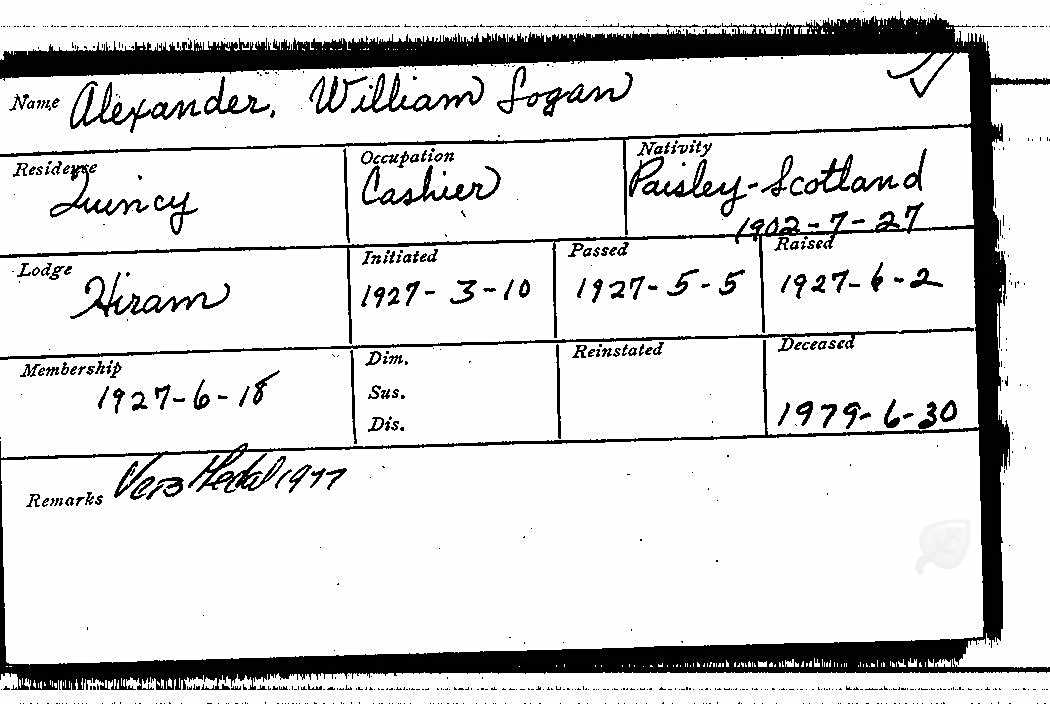 Name Alexander, William Logan
Residence Quincy
Occupation Cashier
Nativity Paisley-Scotland
1902-7-27
Lodge Hiram
Initiated 1927-3-10
Passed 1927-5-5
Raised 1927-6-2
Membership 1927-6-18
Dim.
Sus.
Dis.
Reinstated
Deceased 1979-6-30
Remarks Vets Medal 1977